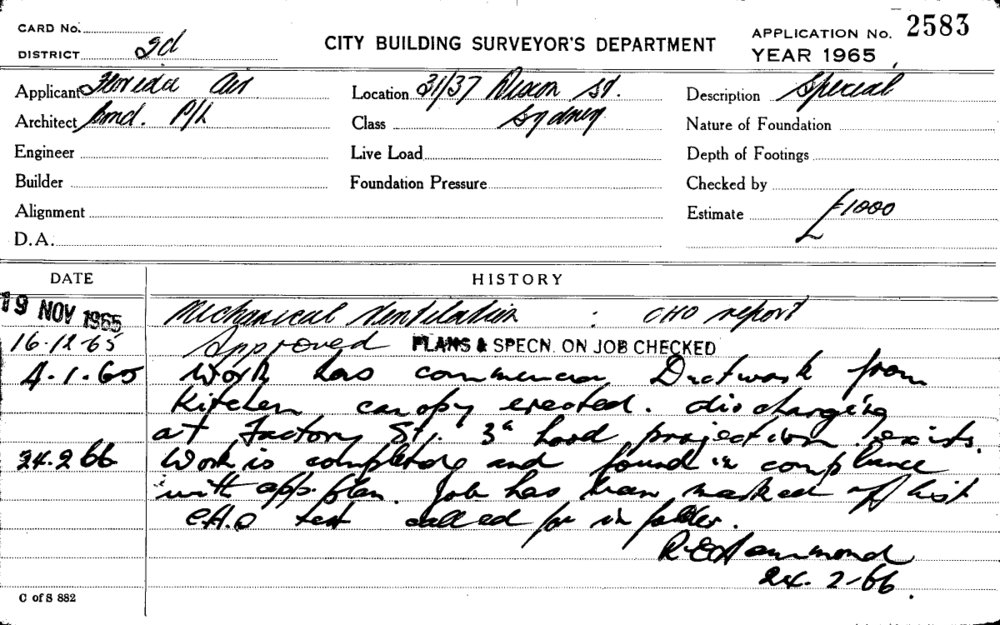 CARD No.
DISTRICT 2d
CITY BUILDING SURVEYOR'S DEPARTMENT
APPLICATION No. 2583
YEAR 1965
Applicant Floreda Air
Location 31/37 Dixon St.
Description Special
Architect Cond. P/L
Class Sydney
Nature of Foundation
Engineer
Live Load
Depth of Footings
Builder
Foundation Pressure
Checked by
Alignment
Estimate £1000
D.A.
DATE
HISTORY
19 NOV 1965 Mechanical Ventilation : CHO report
16.12.65 Approved PLANS & SPECN. ON JOB CHECKED
4.1.65 Work has commenced Ductwork from
Kitchen canopy erected. discharging
at Factory St. 3" hood projection exists.
24.2.66 Work is complete and found in compliance
with app. plan. Job has been marked off list
C.H.O test called for in folder.
R E Hammond
24.2.66.
C of S 882